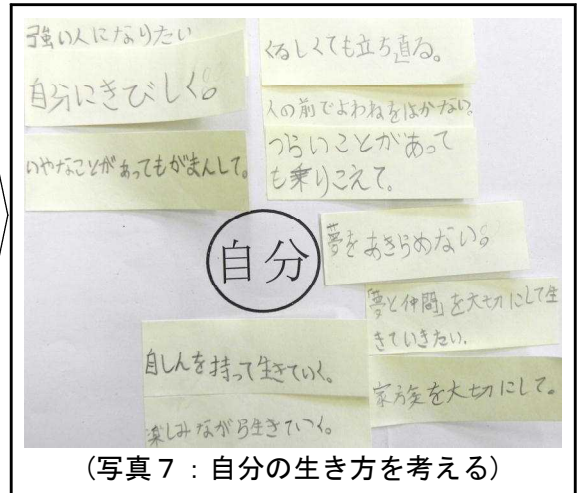 強い人になりたい
自分にきびしく。
いやなことがあってもがまんして。
くるしくても立ち直る。
人の前でよわねをはかない。
つらいことがあって
も乗りこえて。
自分
夢をあきらめない。
「夢と仲間」を大切にして生
きていきたい。
家族を大切にして。
自しんを持って生きていく。
楽しみながら生きていく。
(写真7:自分の生き方を考える)